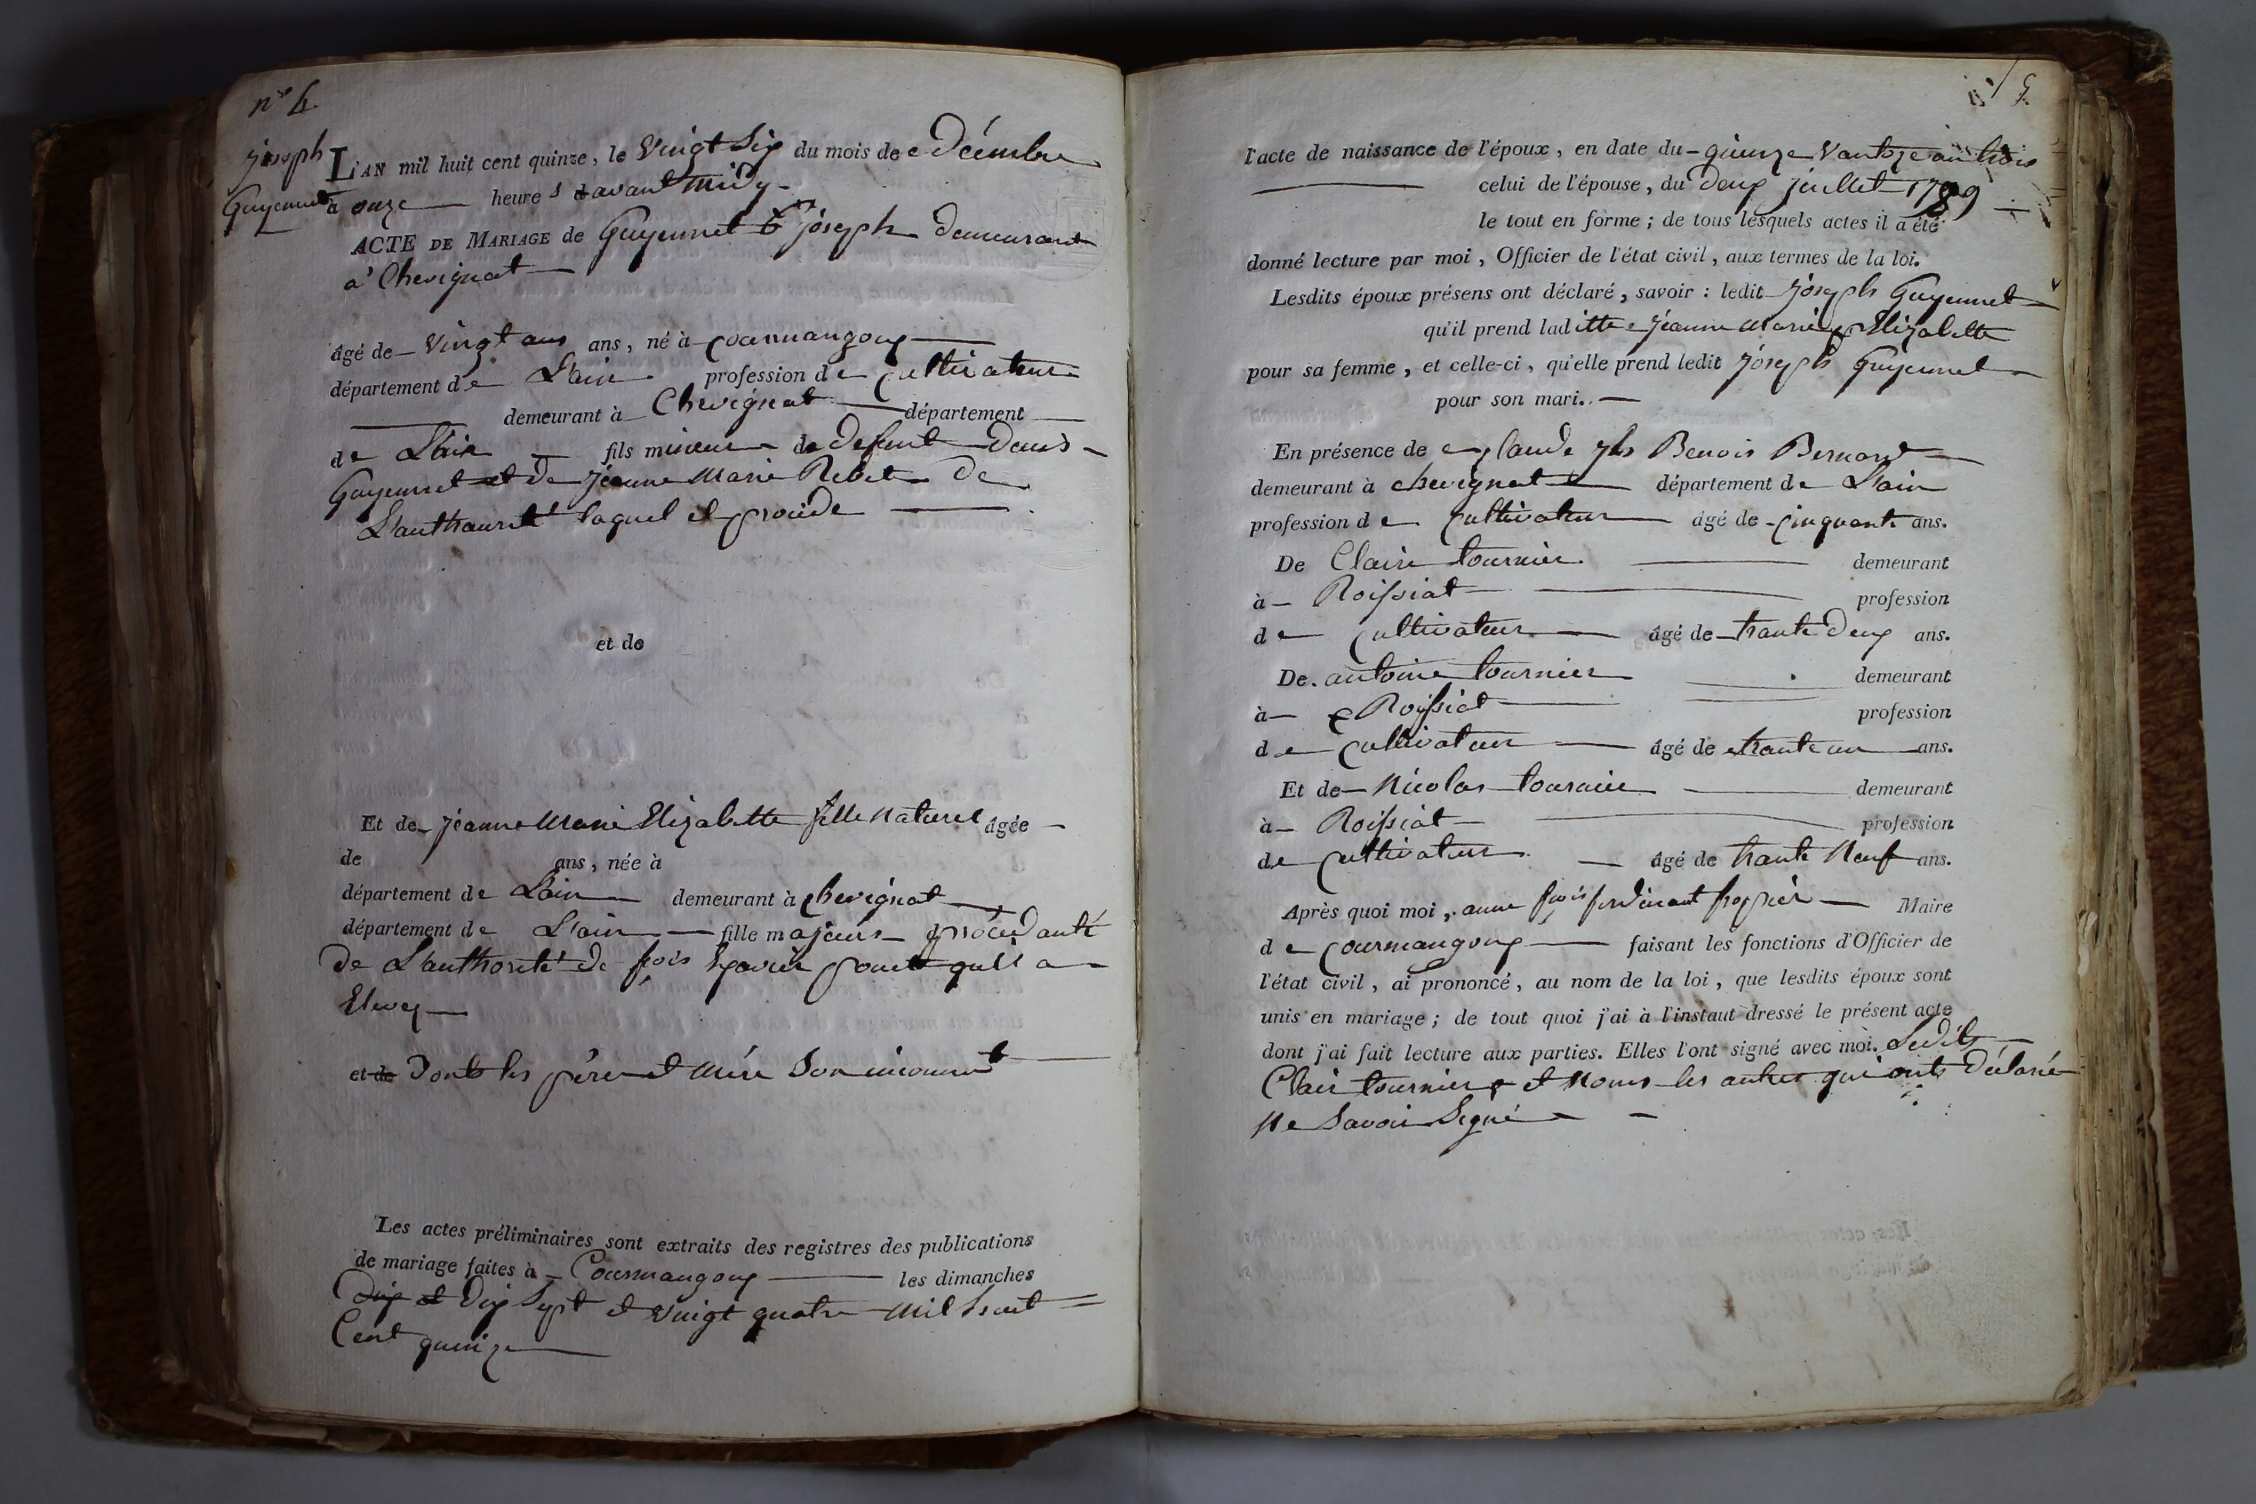 n.° 4
joseph
Guyennet
L'AN mil huit cent quinze, le vingt Six du mois de Décembre
à onze heures avant midy
ACTE DE MARIAGE de Guyennet joseph demeurant
a' Chevignat
âgé de vingt ans ans, né à Courmangoux
département de L'ain profession de Cultivateur
demeurant à Chevignat département
de L'ain fils mineur de defunt Denis
Guyennet et de jeanne Marie Rebet De
L'authaurité laquel il procède
et de
Et de jeanne Marie Elizabette fille naturel âgée
de ans, née à
département de L'ain demeurant à Chevignat
département de L'ain fille majeure procédante
de L'authorité de fçois Xavier qu'il a
Elevez
et de Dont les père et mère Son inconnut
Les actes préliminaires sont extraits des registres des publications
de mariage faites à Courmangoux les dimanches
Dix et Dix Sept et vingt quatre mil huit
Cent quinze
5
l'acte de naissance de l'époux, en date du quinze vantoze an trois
celui de l'épouse, du deux juillet 1789
le tout en forme ; de tous lesquels actes il a été
donné lecture par moi, Officier de l'état civil, aux termes de la loi.
Lesdits époux présens ont déclaré, savoir : ledit joseph Guyennet
qu'il prend laditte jeanne Marie Elizabette
pour sa femme, et celle-ci, qu'elle prend ledit joseph Guyennet
pour son mari.
En présence de Claude jh Benois Bernard
demeurant à Chevignat département de L'ain
profession de Cultivateur âgé de cinquante ans.
De Clair tournier demeurant
à Roissiat profession
de Cultivateur âgé de trante deux ans.
De antoine tournier demeurant
à Roissiat profession
de Cultivateur âgé de trante un ans.
Et de Nicolas tournier demeurant
à Roissiat profession
de Cultivateur âgé de trante Neuf ans.
Après quoi moi, anne fçois ferdinant Maire
de Courmangoux faisant les fonctions d'Officier de
l'état civil, ai prononcé, au nom de la loi, que lesdits époux sont
unis en mariage ; de tout quoi j'ai à l'instaut dressé le présent acte
dont j'ai fait lecture aux parties. Elles l'ont signé avec moi. Ledits
Clair tournier et Nous les autres qui onts déclaré
Ne Savoir Signé